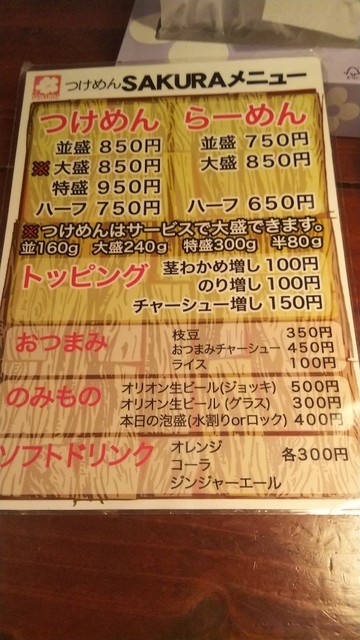 つけめんSAKURAメニュー
つけめん らーめん
並盛 850円 並盛 750円
※大盛 850円 大盛 850円
特盛 950円
ハーフ 750円 ハーフ 650円
※つけめんはサービスで大盛できます。
並160g 大盛240g 特盛300g 半80g
トッピング 茎わかめ増し 100円
のり増し 100円
チャーシュー増し 150円
おつまみ 枝豆 350円
おつまみチャーシュー 450円
ライス 100円
のみもの オリオン生ビール(ジョッキ) 500円
オリオン生ビール (グラス) 300円
本日の泡盛(水割りorロック) 400円
ソフトドリンク オレンジ 各300円
コーラ
ジンジャーエール